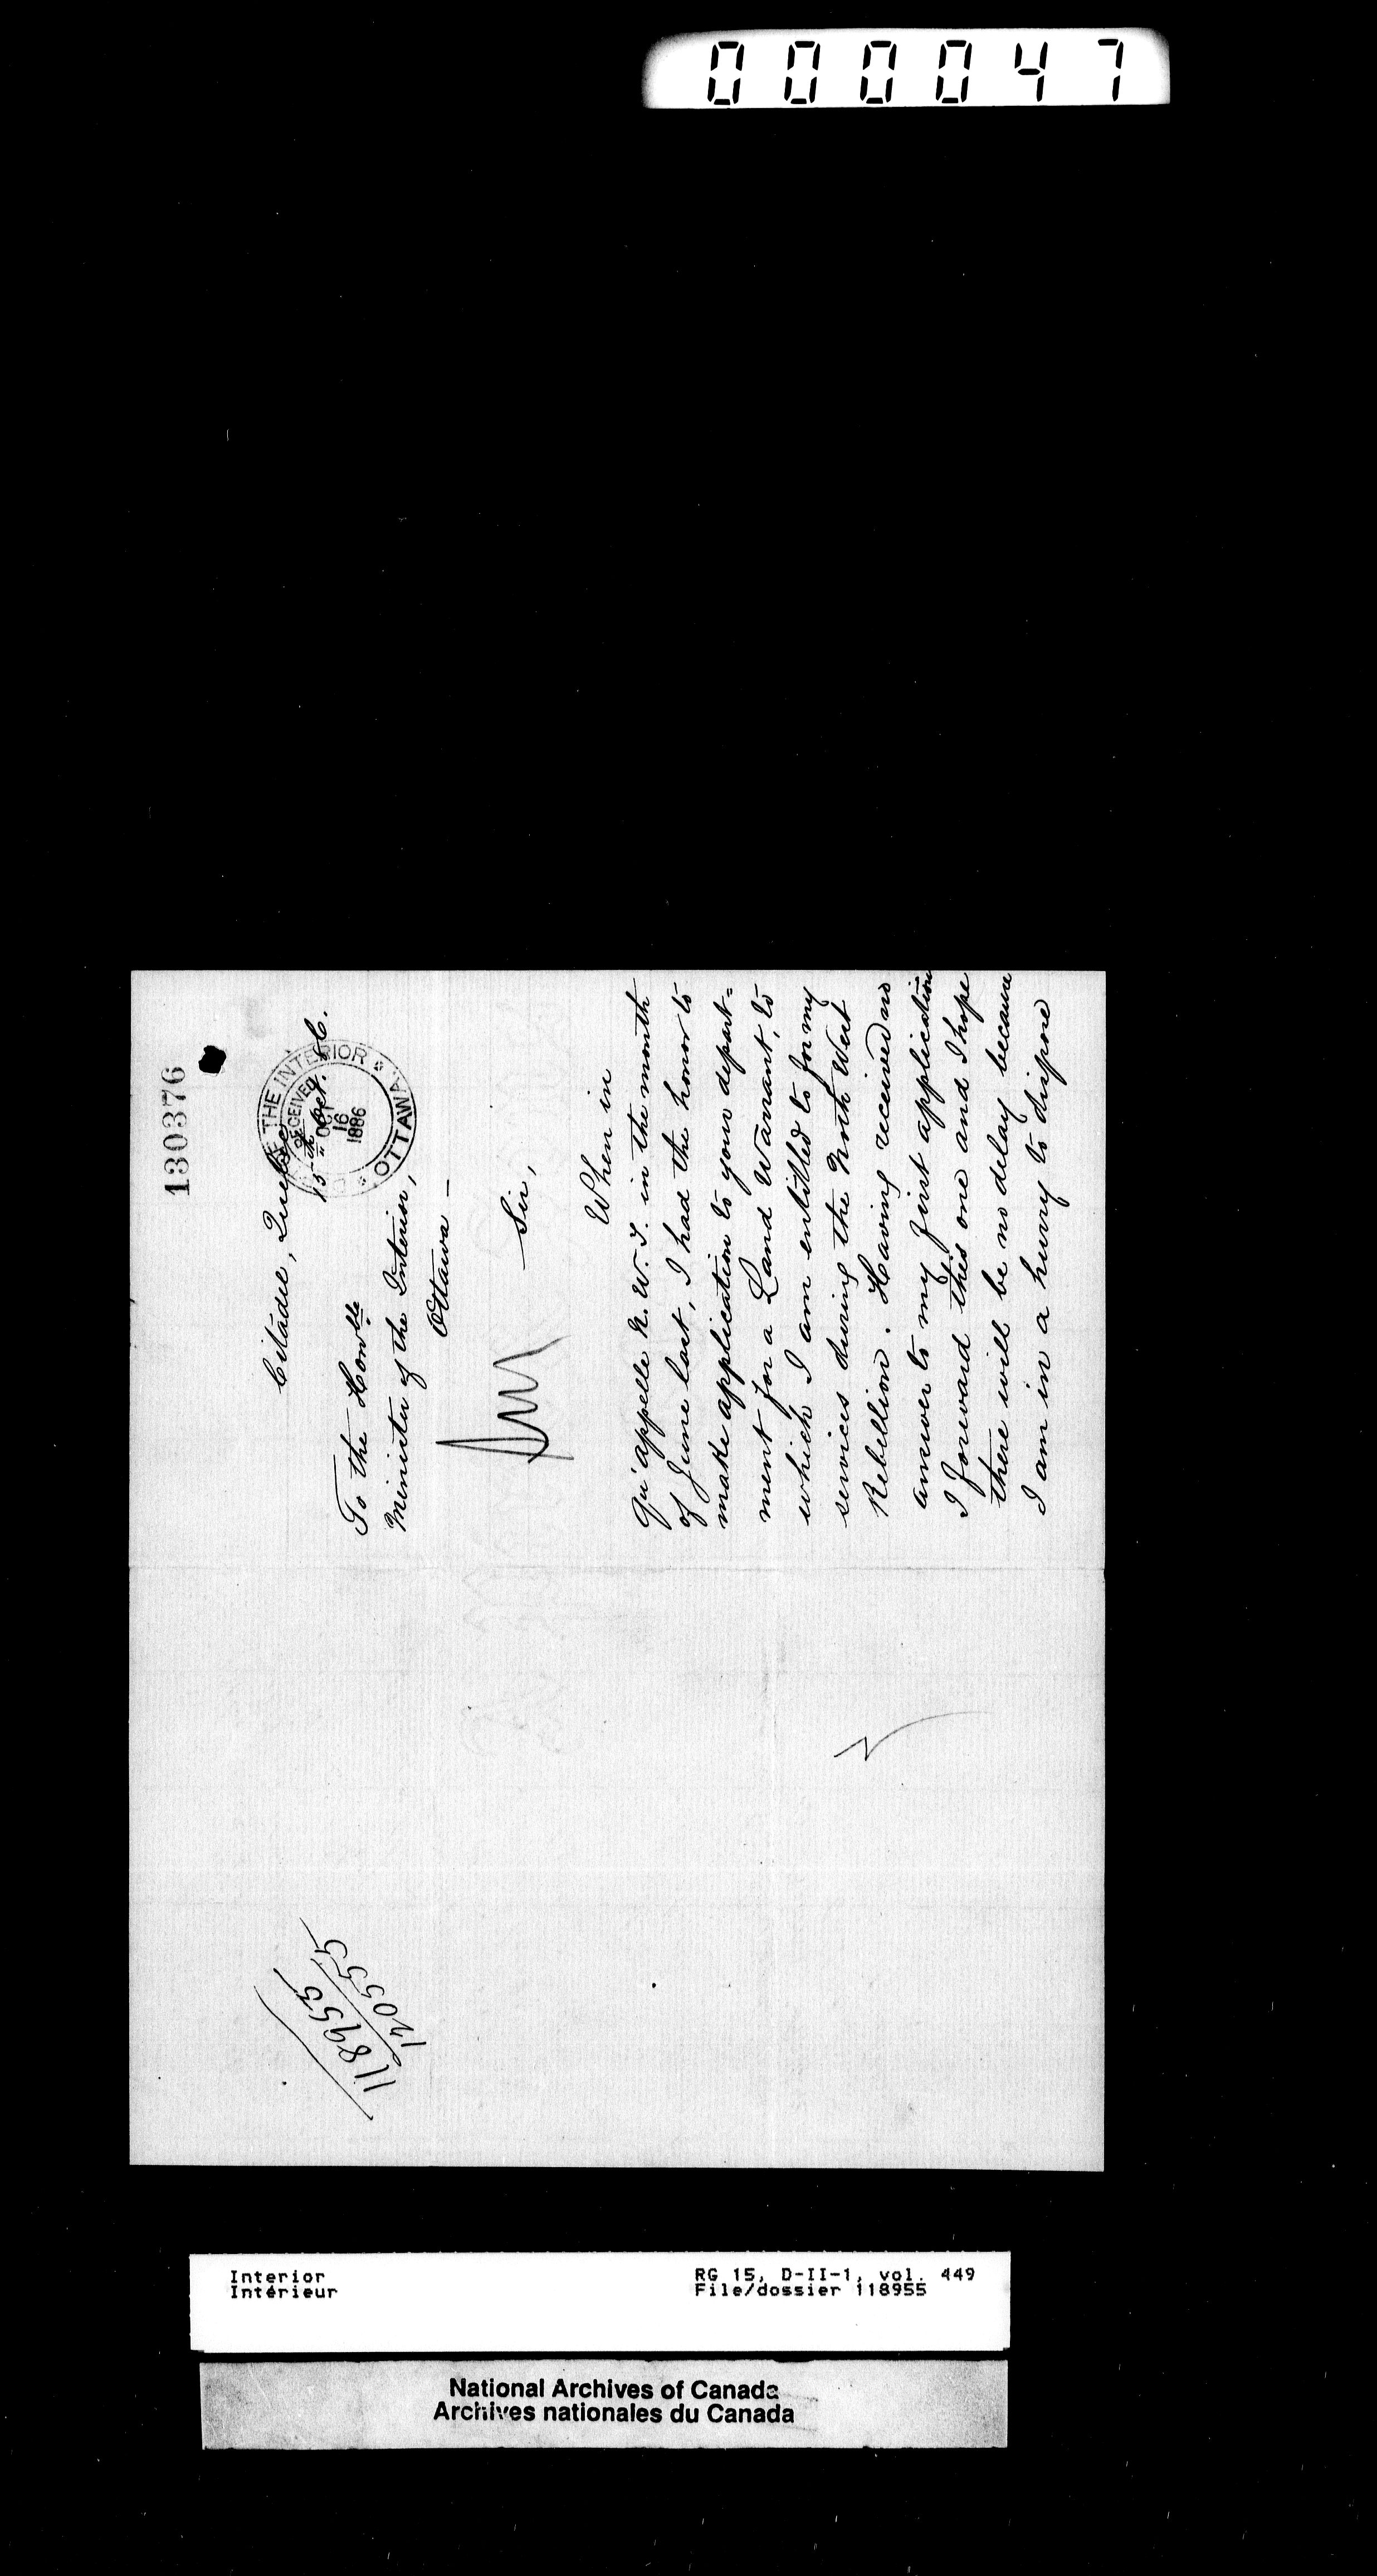 000047
130376
Citadel, Quebec
15th Oct. 86.
THE INTERIOR
RECEIVED
OCT
16
1886
OTTAWA
To the Honble
Minister of the Interior,
Ottawa –
Sir,
When in
Qu'appelle N.W.T. in the month
of June last, I had the honor to
make application to your depart=
ment for a Land Warrant, to
which I am entitled to for my
services during the North West
Rebellion. Having received no
answer to my first application
I forward this one and I hope
there will be no delay because
I am in a hurry to dispose
118955
120555
Interior
Intérieur
RG 15, D-II-1, vol. 449
File/dossier 118955
National Archives of Canada
Archives nationales du Canada